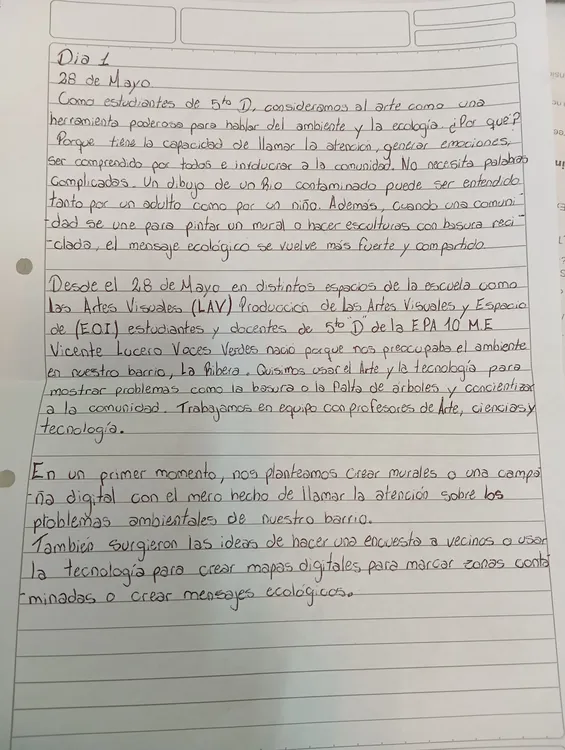 Dia 1
28 de Mayo
Como estudiantes de 5to D, consideramos al arte como una
herramienta poderosa para hablar del ambiente y la ecología. ¿Por qué?
Porque tiene la capacidad de llamar la atención, generar emociones,
ser comprendido por todos e involucrar a la comunidad. No necesita palabras
complicadas. Un dibujo de un Rio contaminado puede ser entendido
tanto por un adulto como por un niño. Además, cuando una comuni-
-dad se une para pintar un mural o hacer esculturas con basura reci-
-clada, el mensaje ecológico se vuelve más fuerte y compartido
Desde el 28 de Mayo en distintos espacios de la escuela como
las Artes Visuales (LAV) Producción de las Artes Visuales y Espacio
de (EOI) estudiantes y docentes de 5to "D" de la EPA 10 M.E
Vicente Lucero Voces Verdes nació porque nos preocupaba el ambiente
en nuestro barrio, La Ribera. Quisimos usar el Arte y la tecnología para
mostrar problemas como la basura o la falta de árboles y concientizar
a la comunidad. Trabajamos en equipo con profesores de Arte, ciencias y
tecnología.
En un primer momento, nos planteamos crear murales o una campa
-ña digital con el mero hecho de llamar la atención sobre los
problemas ambientales de nuestro barrio.
También surgieron las ideas de hacer una encuesta a vecinos o usar
la tecnología para crear mapas digitales para marcar zonas conta
-minadas o crear mensajes ecológicos.